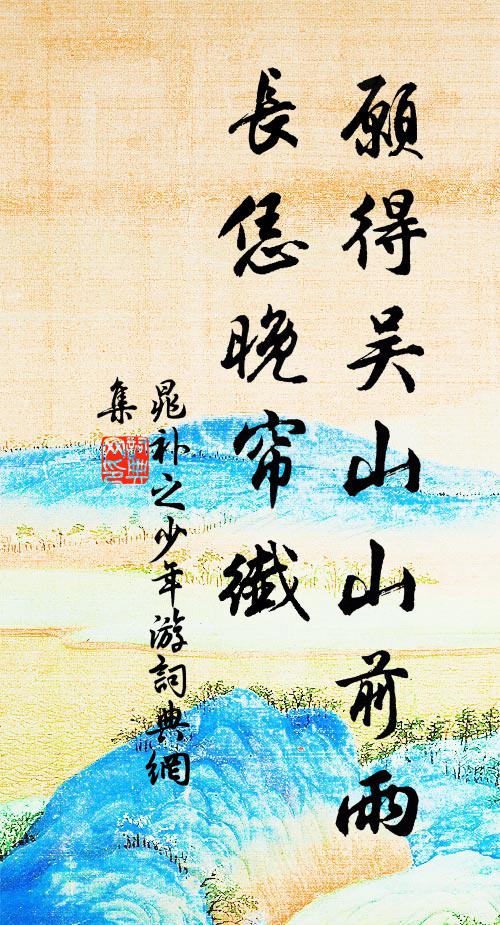 願得吴山山前雨
長恁晚帘纖
晁补之少年游詞典網
集